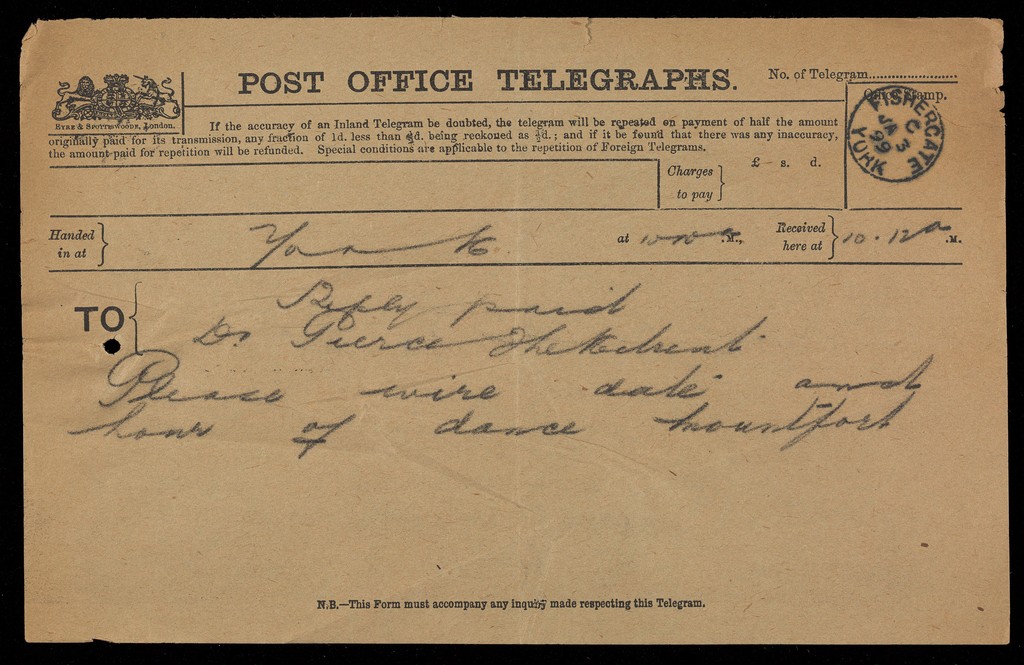 POST OFFICE TELEGRAPHS.
No. of Telegram
Office Stamp.
EYRE & SPOTTISWOODE, London.
If the accuracy of an Inland Telegram be doubted, the telegram will be repeated on payment of half the amount
originally paid for its transmission, any fraction of 1d. less than ½d. being reckoned as ½d.; and if it be found that there was any inaccuracy,
the amount paid for repetition will be refunded. Special conditions are applicable to the repetition of Foreign Telegrams.
FISHERGATE
C
JA 3
99
YORK
Charges to pay } £ s. d.
Handed in at } York at .M., Received here at } 10.12 a .M.
TO { Reply paid
Dr Pierce The Retreat
Please wire date and
hour of dance Mountfort
N.B.—This Form must accompany any inquiry made respecting this Telegram.